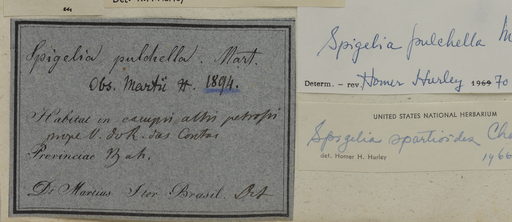 Spigelia pulchella. Mart.
Obs. Martii H. 1894.
Habitat in campis altis petrosis
prope V. do R. das Contas
Provinciae Bah.
Dr Martius Iter Brasil. Det
Spigelia pulchella M
Determ. – rev. Homer Hurley 1969 70
UNITED STATES NATIONAL HERBARIUM
Spigelia spartioides Cha
det. Homer H. Hurley 1966